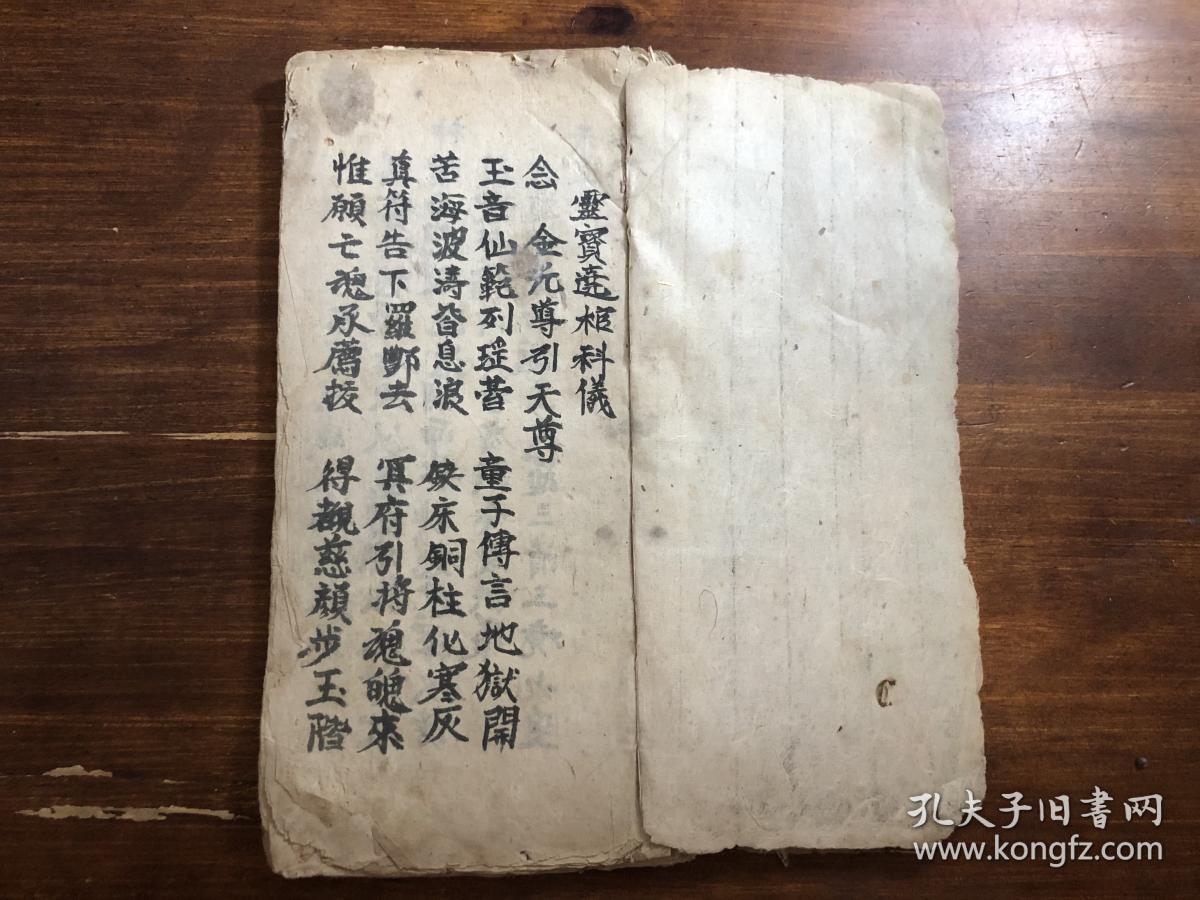 靈寶遶棺科儀
念 金光尊引天尊
玉音仙範列瑶 童子傳言地獄開
苦海波濤皆息浪 鉄床銅柱化寒灰
真符告下羅酆去 冥府引将魂魄來
惟願亡魂承薦拔 得觀慈顔步玉階
孔夫子旧书网
www.kongfz.com